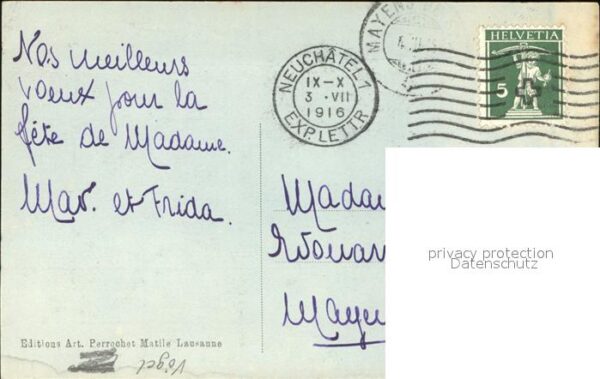 Nos meilleurs
voeux pour la
fête de Madame.
Mar. et Frida.
Editions Art. Perrochet Matile Lausanne
Vögel
NEUCHÂTEL 1
IX-X
3. VII
1916
EXP. LETTR
MAYENS
HELVETIA
5
Madam
Edouar
Maye
privacy protection
Datenschutz